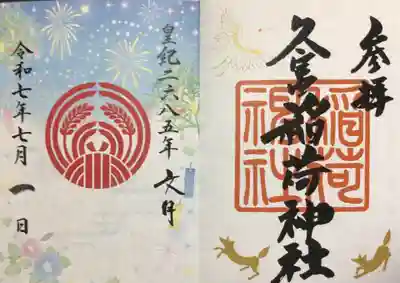 参拝
久富稲荷神社
稲荷
神社
皇紀二六八五年 文月
令和七年七月一日